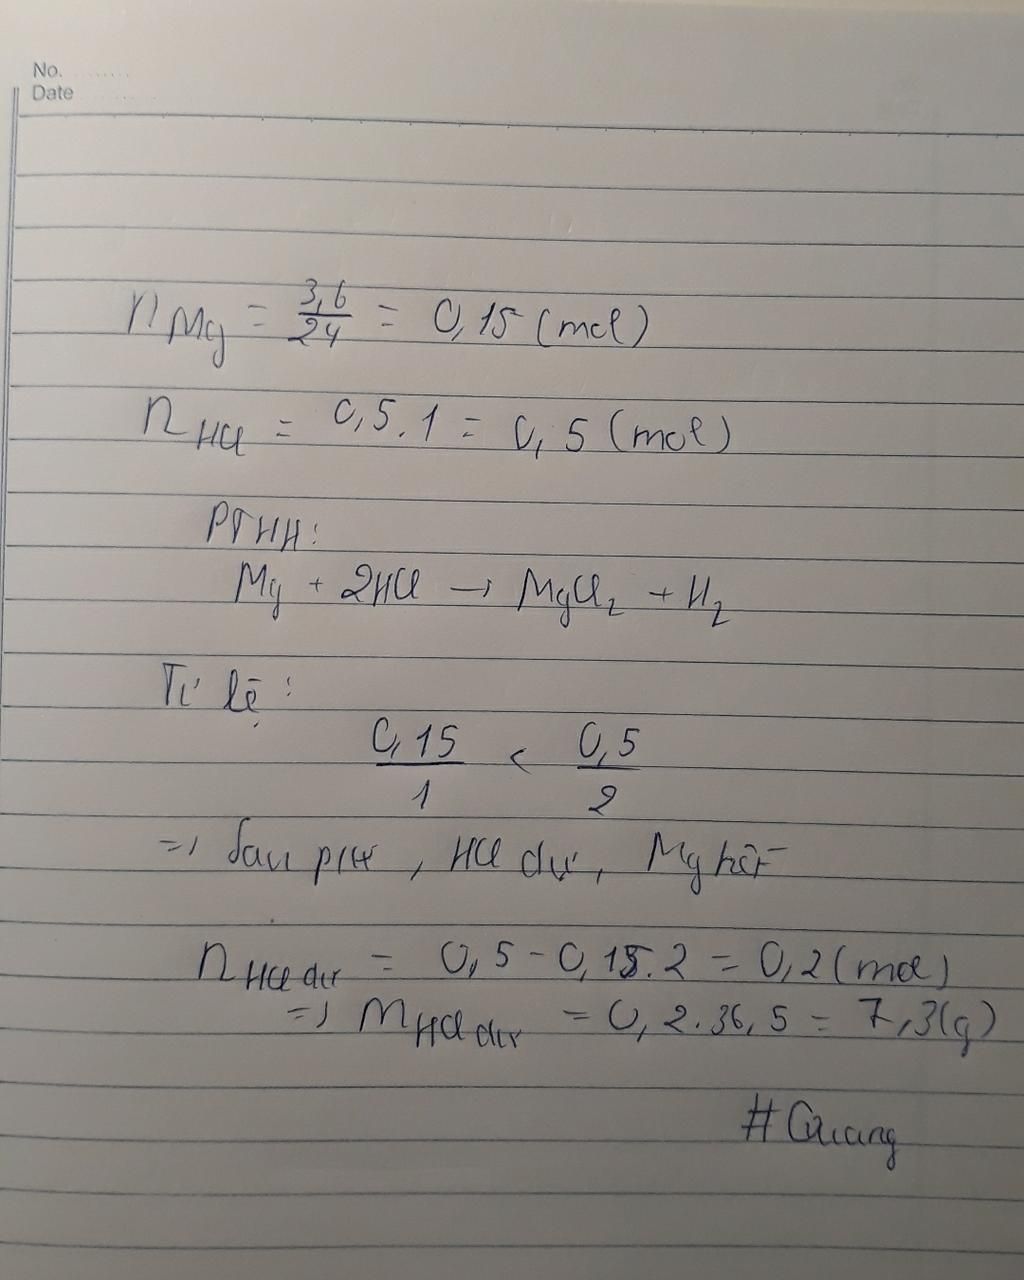 No. ........
Date ........
n Mg = 3,6/24 = 0,15 (mol)
n HCl = 0,5.1 = 0,5 (mol)
PTHH:
Mg + 2HCl → MgCl₂ + H₂
Tỉ lệ:
0,15/1 < 0,5/2
=> Sau pứ, HCl dư, Mg hết
n HCl dư = 0,5 - 0,15.2 = 0,2 (mol)
=> m HCl dư = 0,2.36,5 = 7,3(g)
#Quang